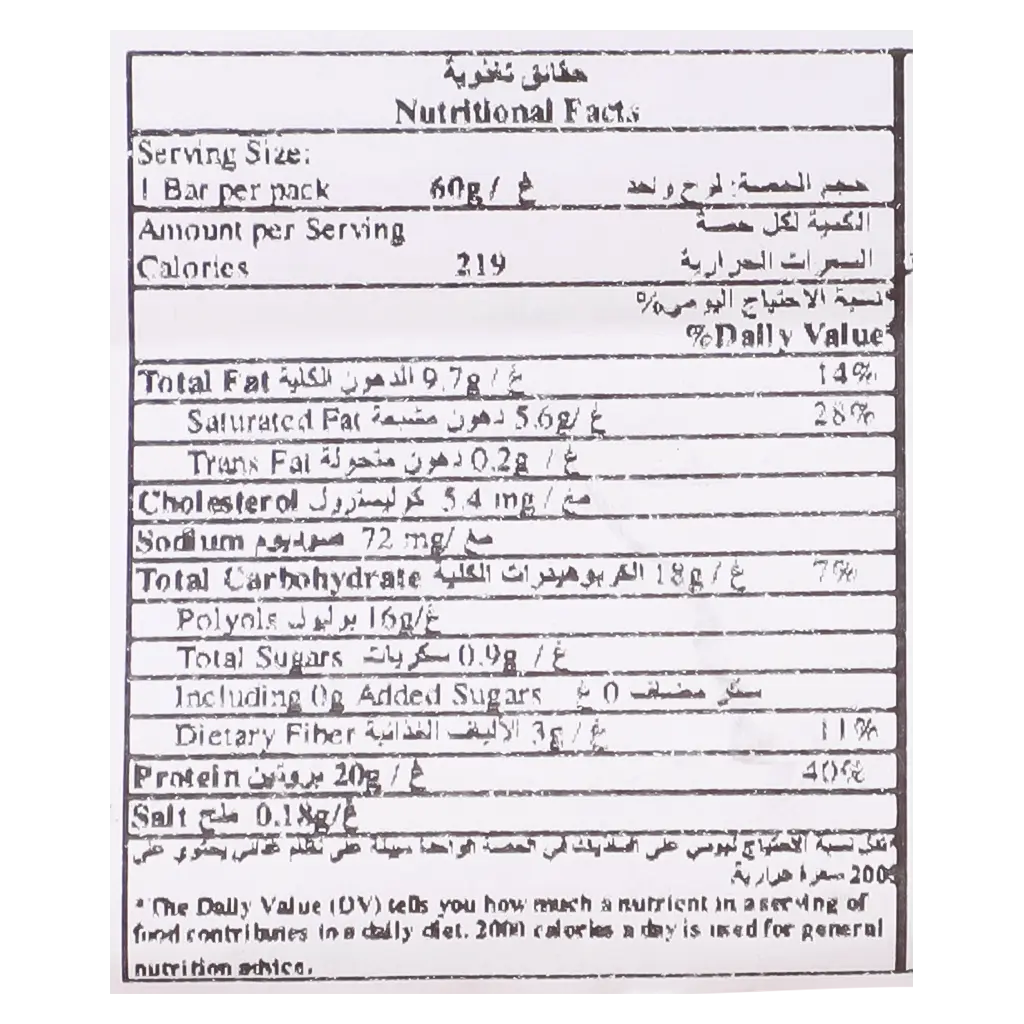 حقائق تغذوية
Nutritional Facts
Serving Size:
1 Bar per pack 60g / غ حجم الحصة: لوح واحد
Amount per Serving الكمية لكل حصة
Calories 219 السعرات الحرارية
نسبة الاحتياج اليومي%*
%Daily Value*
Total Fat الدهون الكلية 9.7g / غ 14%
Saturated Fat دهون مشبعة 5.6g/ غ 28%
Trans Fat دهون متحولة 0.2g / غ
Cholesterol كوليسترول 5.4 mg / مغ
Sodium صوديوم 72 mg/ مغ
Total Carbohydrate الكربوهيدرات الكلية 18g / غ 7%
Polyols بوليول 16g/غ
Total Sugars سكريات 0.9g / غ
Including 0g Added Sugars سكر مضاف 0 غ
Dietary Fiber الألياف الغذائية 3g / غ 11%
Protein بروتين 20g / غ 40%
Salt ملح 0.18g/غ
نسبة الاحتياج اليومي على في الحصة الواحدة على نظام غذائي يحتوي على
سعرة حرارية.
* The Daily Value (DV) tells you how much a nutrient in a serving of
food contributes to a daily diet. 2000 calories a day is used for general
nutrition advice.